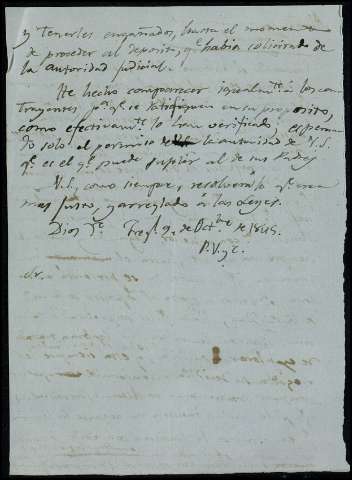 y tenerles engañados, hasta el momento
de proceder al deposito, qe. había solicitado de
la autoridad judicial.
He hecho comparecer igualmte. á los con
trayentes pa. qe. se ratifiquen en su proposito,
como efectivamte. lo han verificado, esperan
do solo el permiso de la autoridad de V.S.
qe. es el qe. puede suplir al de sus Padres
V.S., como siempre, resolverá lo qe. crea
mas justo, y arreglado a las Leyes.
Dios &c. 9 de Octbre. de 1845.
P.V. &c.